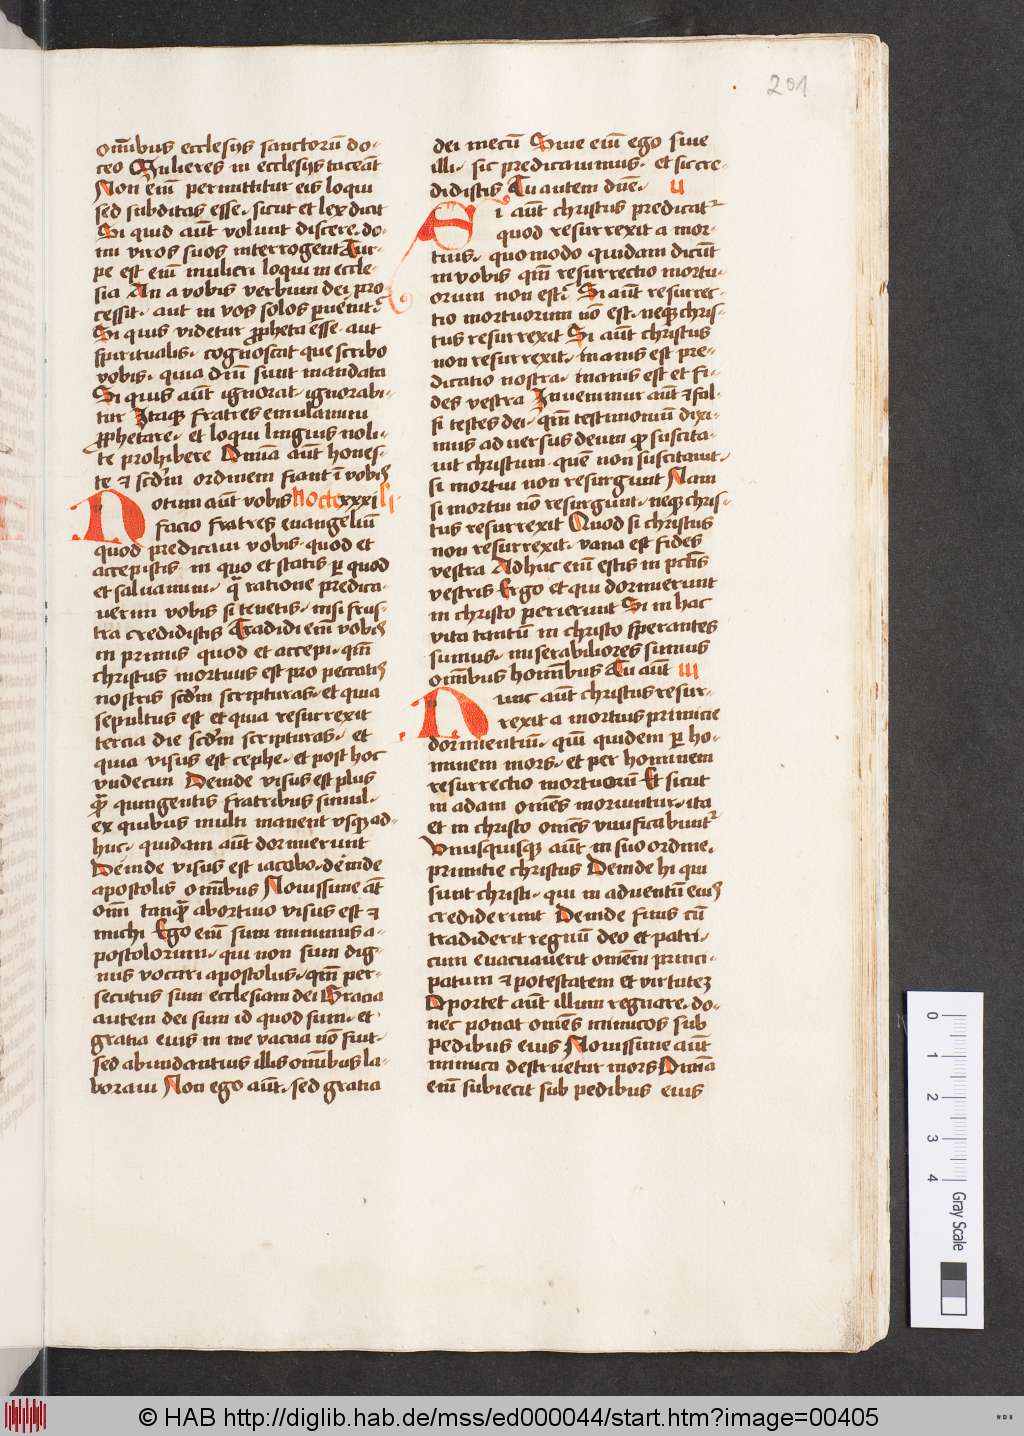 201
om̅ibus ecclesijs sanctoru̅ do-
ceo Mulieres in ecclesijs taceãt
Non eni̅ permittitur eis loqui
sed subditas esse sicut et lex dicit
Si quid aut̅ volunt discere do-
mi viros suos interrogent Tur-
pe est eni̅ mulieri loqui in eccle-
sia An a vobis verbum dei pro
cessit aut in vos solos puenit
Si quis videtur ppheta esse aut
spiritualis cognoscat que scribo
vobis quia dn̅i sunt mandata
Si quis aut̅ ignorat ignorabi-
tur Itaqꝫ fratres emulamini
pphetare et loqui linguis noli-
te prohibere Omnia aut̅ hones-
te ⁊ scd̅m ordinem fiant i̅ vobis
Notum aut̅ vobis Nocte xxxi li
facio fratres euangeliu̅
quod predicaui vobis quod et
accepistis in quo et statis ꝑ quod
et saluamini qua ratione predica-
uerim vobis si tenetis nisi frus-
tra credidistis Tradidi eni̅ vobis
in primis quod et accepi qm̅
christus mortuus est pro peccatis
nostris scd̅m scripturas et quia
sepultus est et quia resurrexit
tercia die scd̅m scripturas et
quia visus est cephe et post hoc
vndecim Deinde visus est plus
quam quingentis fratribus simul
ex quibus multi manent vsqꝫ ad-
huc quidam aut̅ dormierunt
Deinde visus est iacobo deinde
apostolis om̅ibus Nouissime at̅
om̅i tanquam abortiuo visus est ⁊
michi Ego eni̅ sum minimus a-
postolorum qui non sum dig-
nus vocari apostolus qm̅ per-
secutus sum ecclesiam dei Gracia
autem dei sum id quod sum et
gratia eius in me vacua no̅ fuit
sed abundantius illis om̅ibus la-
boraui Non ego aut̅ sed gratia
dei mecu̅ Siue eni̅ ego siue
illi sic predicauimus et sic cre-
didistis Tu autem dn̅e ii
Si aut̅ christus predicatur
quod resurrexit a mor-
tuis quomodo quidam dicu̅t
in vobis qm̅ resurrectio mortu-
orum non est Si aut̅ resurrec-
tio mortuorum no̅ est neqꝫ chris-
tus resurrexit Si aut̅ christus
non resurrexit inanis est pre-
dicatio nostra inanis est et fi-
des vestra Inuenimur aut̅ ⁊ fal-
si testes dei qm̅ testimoniu̅ dixi-
mus aduersus deum qꝫ suscita-
uit christum que̅ non suscitauit
si mortui non resurgunt Nam
si mortui no̅ resurgunt neqꝫ chris-
tus resurrexit Quod si christus
non resurrexit vana est fides
vestra Adhuc eni̅ estis in pctis̅
vestris Ergo et qui dormierunt
in christo perierunt Si in hac
vita tantu̅ in christo sperantes
sumus miserabiliores sumus
om̅ibus homi̅bus Tu aut̅ iii
Nunc aut̅ christus resur-
rexit a mortuis primicie
dormientiu̅ qm̅ quidem ꝑ ho-
minem mors et per hominem
resurrectio mortuoru̅ Et sicut
in adam om̅es moriuntur ita
et in christo om̅es viuificabuntur
Vnusquisqꝫ aut̅ in suo ordine
primitie christus Deinde hi qui
sunt christi qui in aduentu̅ eius
crediderunt Deinde finis cu̅
tradiderit regnu̅ deo et patri
cum euacuauerit om̅em princi-
patum ⁊ potestatem et virtutez
Oportet aut̅ illum regnare do-
nec ponat om̅es inimicos sub
pedibus eius Nouissime aut̅
inimica destruetur mors Omnia
eni̅ subiecit sub pedibus eius
0 1 2 3 4
Gray Scale
© HAB http://diglib.hab.de/mss/ed000044/start.htm?image=00405